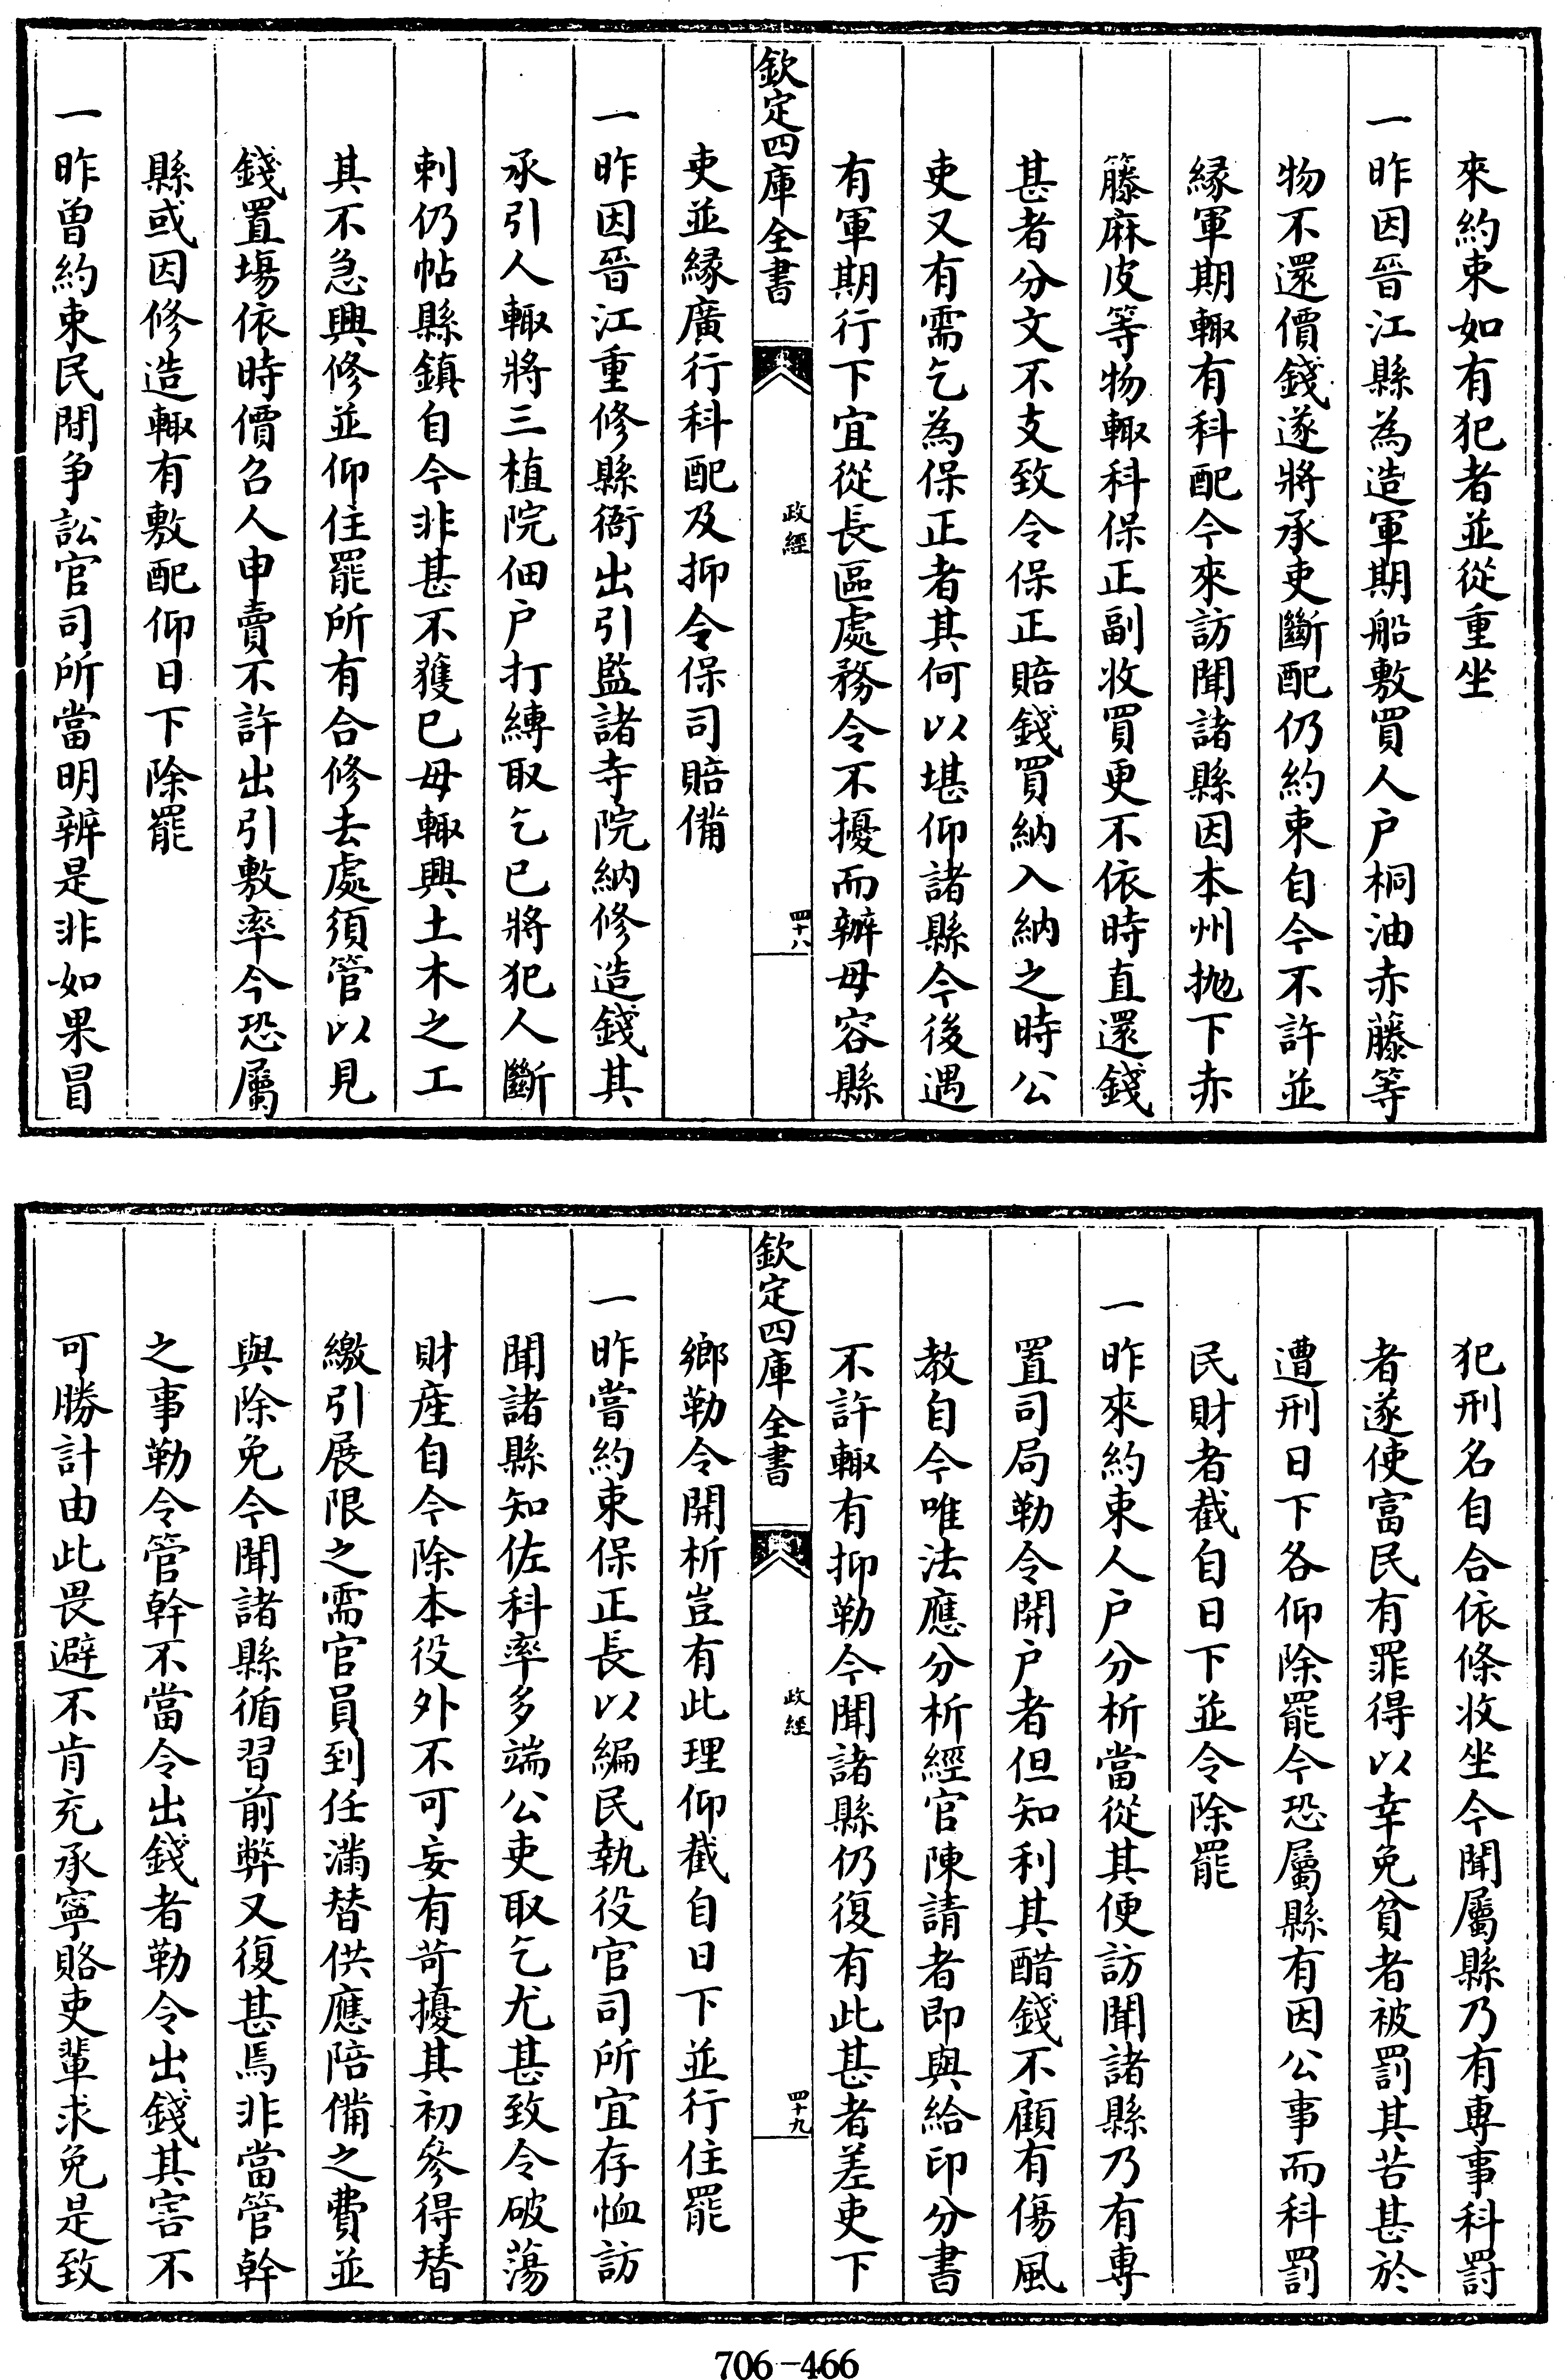 來約束如有犯者並從重坐
一昨因晉江縣為造軍期船敷買人户桐油赤藤等
物不還價錢遂將承吏斷配仍約束自今不許並
縁軍期輙有科配今來訪聞諸縣因本州抛下赤
籐麻皮等物輙科保正副收買更不依時直還錢
甚者分文不支致令保正賠錢買納入納之時公
吏又有需乞為保正者其何以堪仰諸縣今後遇
有軍期行下宜從長區處務令不擾而辦毋容縣
欽定四庫全書
政經
四十八
吏並縁廣行科配及抑令保司賠備
一昨因晉江重修縣衙出引監諸寺院納修造錢其
承引人輙將三植院佃户打縛取乞已將犯人斷
刺仍帖縣鎮自今非甚不獲已毋輙興土木之工
其不急興修並仰住罷所有合修去處須管以見
錢置場依時價召人申賣不許出引敷率今恐屬
縣或因修造輙有敷配仰日下除罷
一昨曾約束民間爭訟官司所當明辨是非如果冒
犯刑名自合依條收坐今聞屬縣乃有專事科罰
者遂使富民有罪得以幸免貧者被罰其苦甚於
遭刑日下各仰除罷今恐屬縣有因公事而科罰
民財者截自日下並令除罷
一昨來約束人户分析當從其便訪聞諸縣乃有專
置司局勒令開户者但知利其醋錢不顧有傷風
教自今唯法應分析經官陳請者即與給印分書
不許輙有抑勒今聞諸縣仍復有此甚者差吏下
欽定四庫全書
政經
四十九
鄉勒令開析豈有此理仰截自日下並行住罷
一昨嘗約束保正長以編民執役官司所宜存恤訪
聞諸縣知佐科率多端公吏取乞尤甚致令破蕩
財産自今除本役外不可妄有苛擾其初參得替
繳引展限之需官員到任滿替供應陪備之費並
與除免今聞諸縣循習前弊又復甚焉非當管幹
之事勒令管幹不當令出錢者勒令出錢其害不
可勝計由此畏避不肯充承寧賂吏輩求免是致
706-466